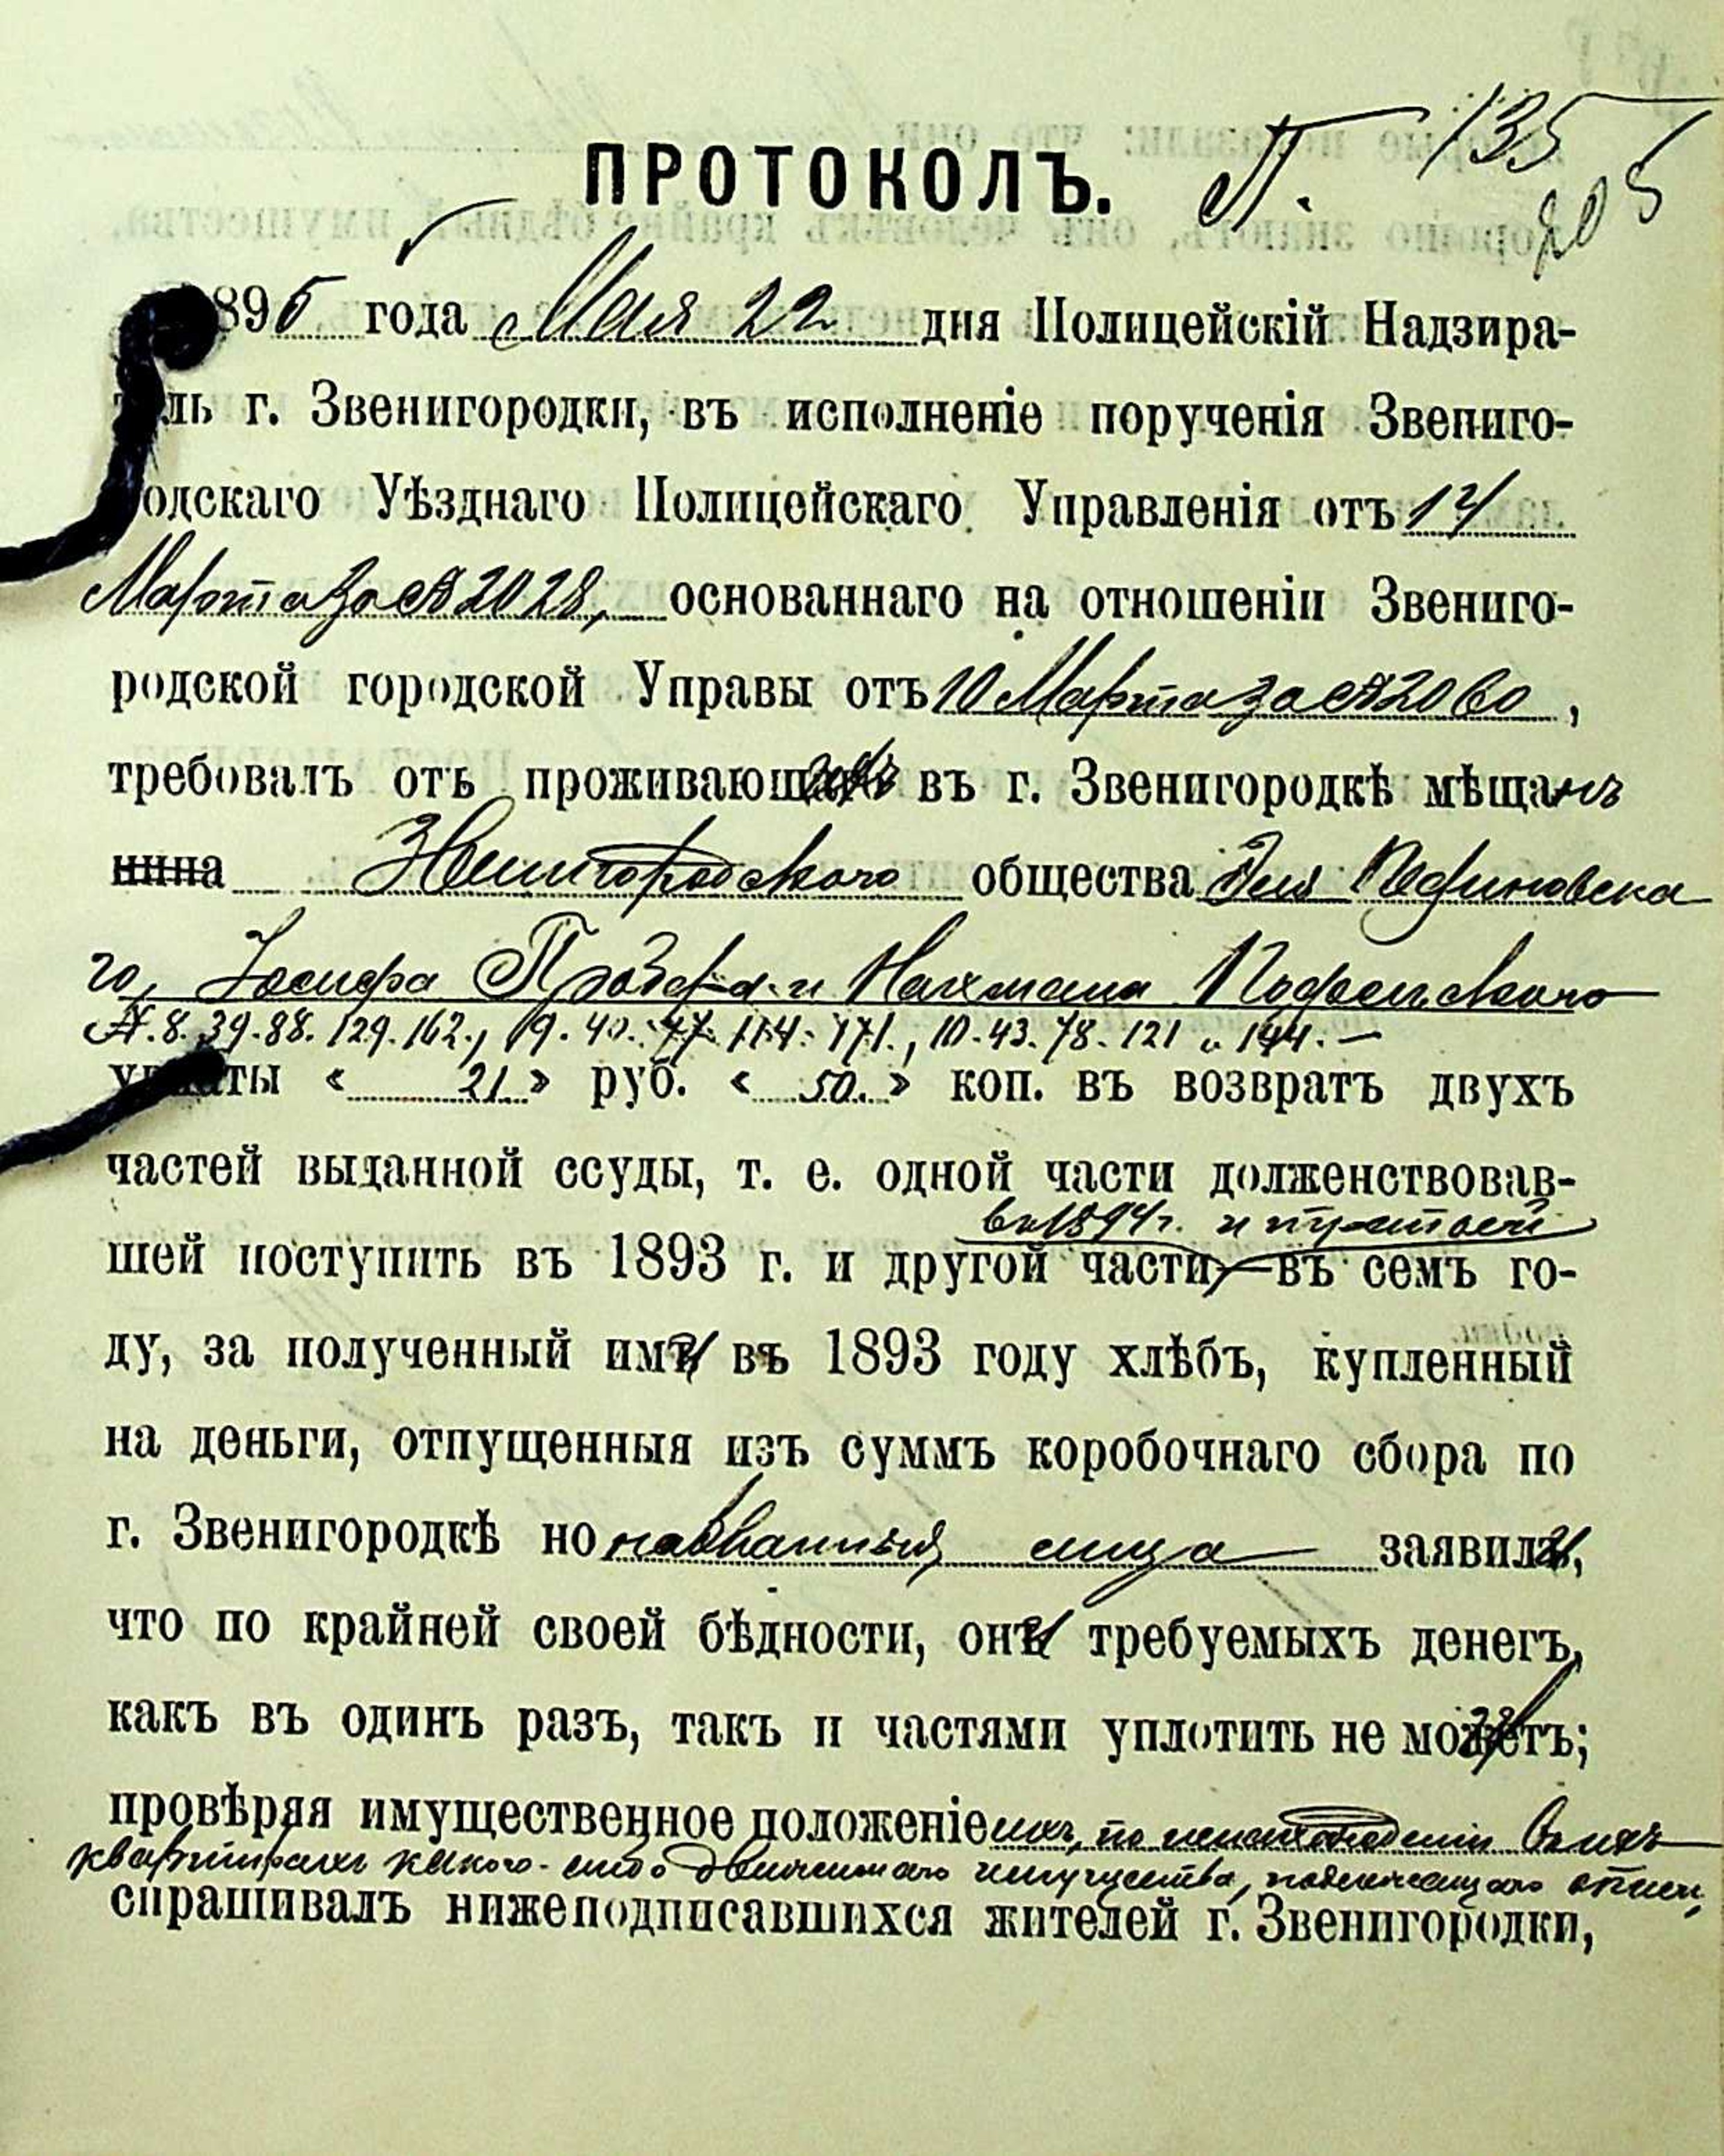 ПРОТОКОЛЪ. П. 135
205
895 года Мая 22 дня Полицейскій Надзира-
тель г. Звенигородки, въ исполненіе порученія Звениго-
одскаго Уѣзднаго Полицейскаго Управленія отъ 14
Марта за № 2028, основаннаго на отношеніи Звениго-
родской городской Управы отъ 10 Марта за № 2060,
требовалъ отъ проживающихъ въ г. Звенигородкѣ мѣщанъ
нина Звенигородского общества
го, Іосифа и Нахмана
№. 8. 39. 88. 129. 162., 19. 40. 77. 114. 171., 10. 43. 78. 121 и 144. —
уплаты « 21 » руб. « 50. » коп. въ возвратъ двухъ
частей выданной ссуды, т. е. одной части долженствовав-
въ 1894 г. и третьей
шей поступить въ 1893 г. и другой части въ семъ го-
ду, за полученный ими въ 1893 году хлѣбъ, купленный
на деньги, отпущенныя изъ суммъ коробочнаго сбора по
г. Звенигородкѣ но названныя лица заявили,
что по крайней своей бѣдности, они требуемыхъ денегъ,
какъ въ одинъ разъ, такъ и частями уплотить не могутъ;
провѣряя имущественное положеніе ихъ, по ненахожденіи въ ихъ
квартирахъ какого-либо движимаго имущества, подлежащаго описи,
спрашивалъ нижеподписавшихся жителей г. Звенигородки,